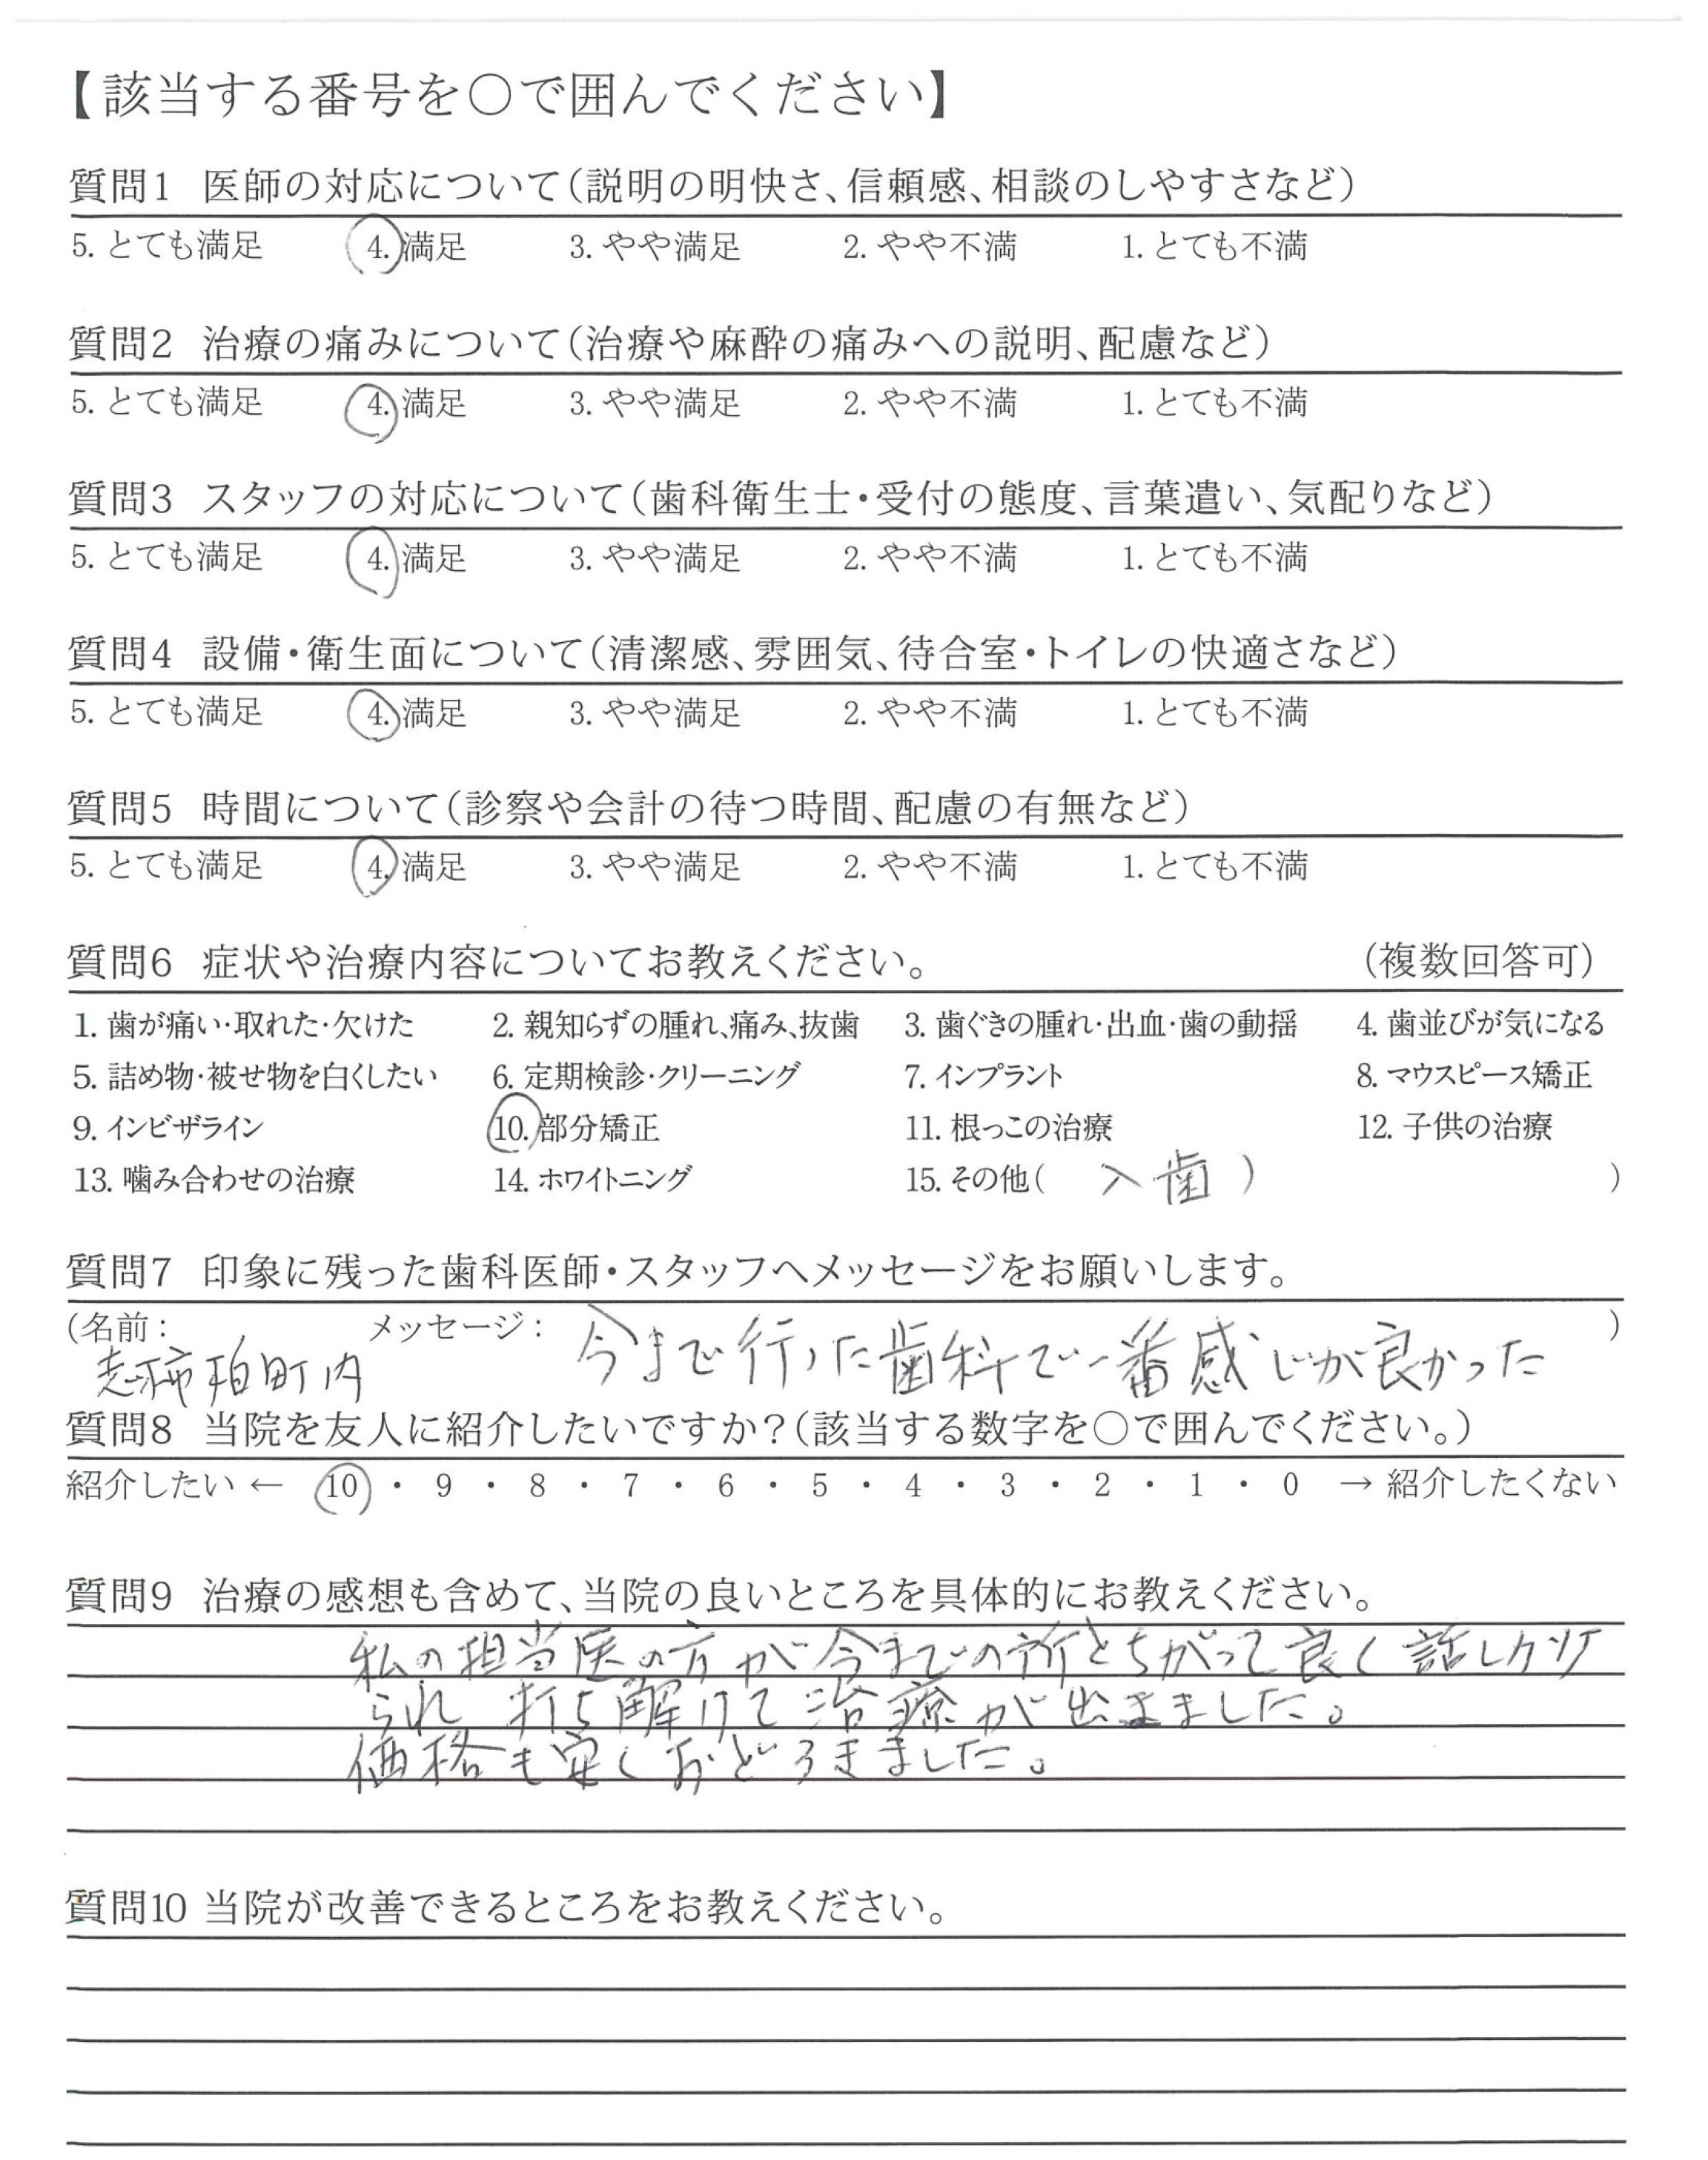 【該当する番号を○で囲んでください】
質問1 医師の対応について(説明の明快さ、信頼感、相談のしやすさなど)
5. とても満足 4. 満足 3. やや満足 2. やや不満 1. とても不満
質問2 治療の痛みについて(治療や麻酔の痛みへの説明、配慮など)
5. とても満足 4. 満足 3. やや満足 2. やや不満 1. とても不満
質問3 スタッフの対応について(歯科衛生士・受付の態度、言葉遣い、気配りなど)
5. とても満足 4. 満足 3. やや満足 2. やや不満 1. とても不満
質問4 設備・衛生面について(清潔感、雰囲気、待合室・トイレの快適さなど)
5. とても満足 4. 満足 3. やや満足 2. やや不満 1. とても不満
質問5 時間について(診察や会計の待つ時間、配慮の有無など)
5. とても満足 4. 満足 3. やや満足 2. やや不満 1. とても不満
質問6 症状や治療内容についてお教えください。 (複数回答可)
1. 歯が痛い・取れた・欠けた 2. 親知らずの腫れ、痛み、抜歯 3. 歯ぐきの腫れ・出血・歯の動揺 4. 歯並びが気になる
5. 詰め物・被せ物を白くしたい 6. 定期検診・クリーニング 7. インプラント 8. マウスピース矯正
9. インビザライン 10. 部分矯正 11. 根っこの治療 12. 子供の治療
13. 噛み合わせの治療 14. ホワイトニング 15. その他( 入歯 ) )
質問7 印象に残った歯科医師・スタッフへメッセージをお願いします。
(名前: メッセージ: 今まで行った歯科で一番感じが良かった )
町内
質問8 当院を友人に紹介したいですか?(該当する数字を○で囲んでください。)
紹介したい ← 10 ・ 9 ・ 8 ・ 7 ・ 6 ・ 5 ・ 4 ・ 3 ・ 2 ・ 1 ・ 0 → 紹介したくない
質問9 治療の感想も含めて、当院の良いところを具体的にお教えください。
私の担当医の方が今までの所とちがって良く話しカケ
られ 打ち解けて治療が出来ました。
価格も安くおどろきました。
質問10 当院が改善できるところをお教えください。